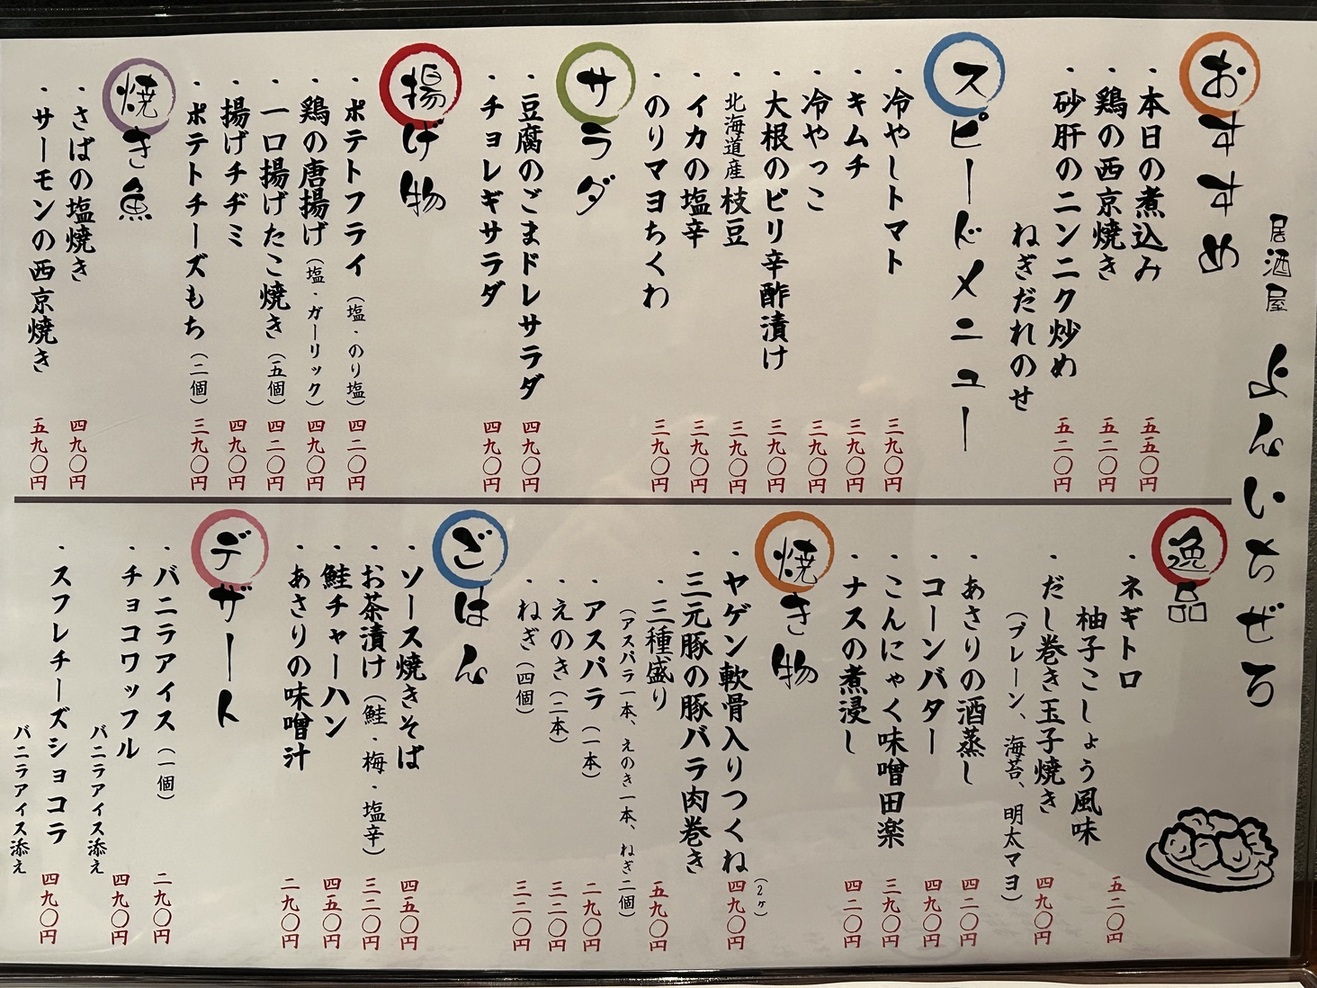 居酒屋 よんいちぜろ
おすすめ
・本日の煮込み 五五〇円
・鶏の西京焼き 五二〇円
・砂肝のニンニク炒め
ねぎだれのせ 五二〇円
スピードメニュー
・冷やしトマト 三九〇円
・キムチ 三九〇円
・冷やっこ 三九〇円
・大根のピリ辛酢漬け 三九〇円
・北海道産 枝豆 三九〇円
・イカの塩辛 三九〇円
・のりマヨちくわ 三九〇円
サラダ
・豆腐のごまドレサラダ 四九〇円
・チョレギサラダ 四九〇円
揚げ物
・ポテトフライ(塩・のり塩) 四二〇円
・鶏の唐揚げ(塩・ガーリック) 四九〇円
・一口揚げたこ焼き(五個) 四二〇円
・揚げチヂミ 四九〇円
・ポテトチーズもち(二個) 三九〇円
焼き魚
・さばの塩焼き 四九〇円
・サーモンの西京焼き 五九〇円
逸品
・ネギトロ
柚子こしょう風味 五二〇円
・だし巻き玉子焼き
(プレーン、海苔、明太マヨ) 四九〇円
・あさりの酒蒸し 四二〇円
・コーンバター 四二〇円
・こんにゃく味噌田楽 三九〇円
・ナスの煮浸し 四二〇円
焼き物
・ヤゲン軟骨入りつくね(2ヶ) 四九〇円
・三元豚の豚バラ肉巻き
・三種盛り 五九〇円
(アスパラ一本、えのき一本、ねぎ二個)
・アスパラ(一本) 二九〇円
・えのき(二本) 三二〇円
・ねぎ(四個) 三二〇円
ごはん
・ソース焼きそば 四五〇円
・お茶漬け(鮭・梅・塩辛) 三二〇円
・鮭チャーハン 四五〇円
・あさりの味噌汁 二九〇円
デザート
・バニラアイス(一個) 二九〇円
・チョコワッフル
バニラアイス添え 四九〇円
・スフレチーズショコラ
バニラアイス添え 四九〇円